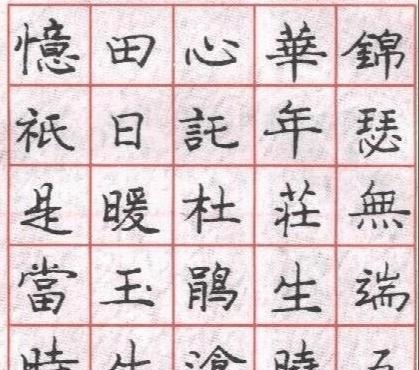 錦瑟無端五
華年莊生曉
心託杜鵑滄
田日暖玉生
憶祇是當時